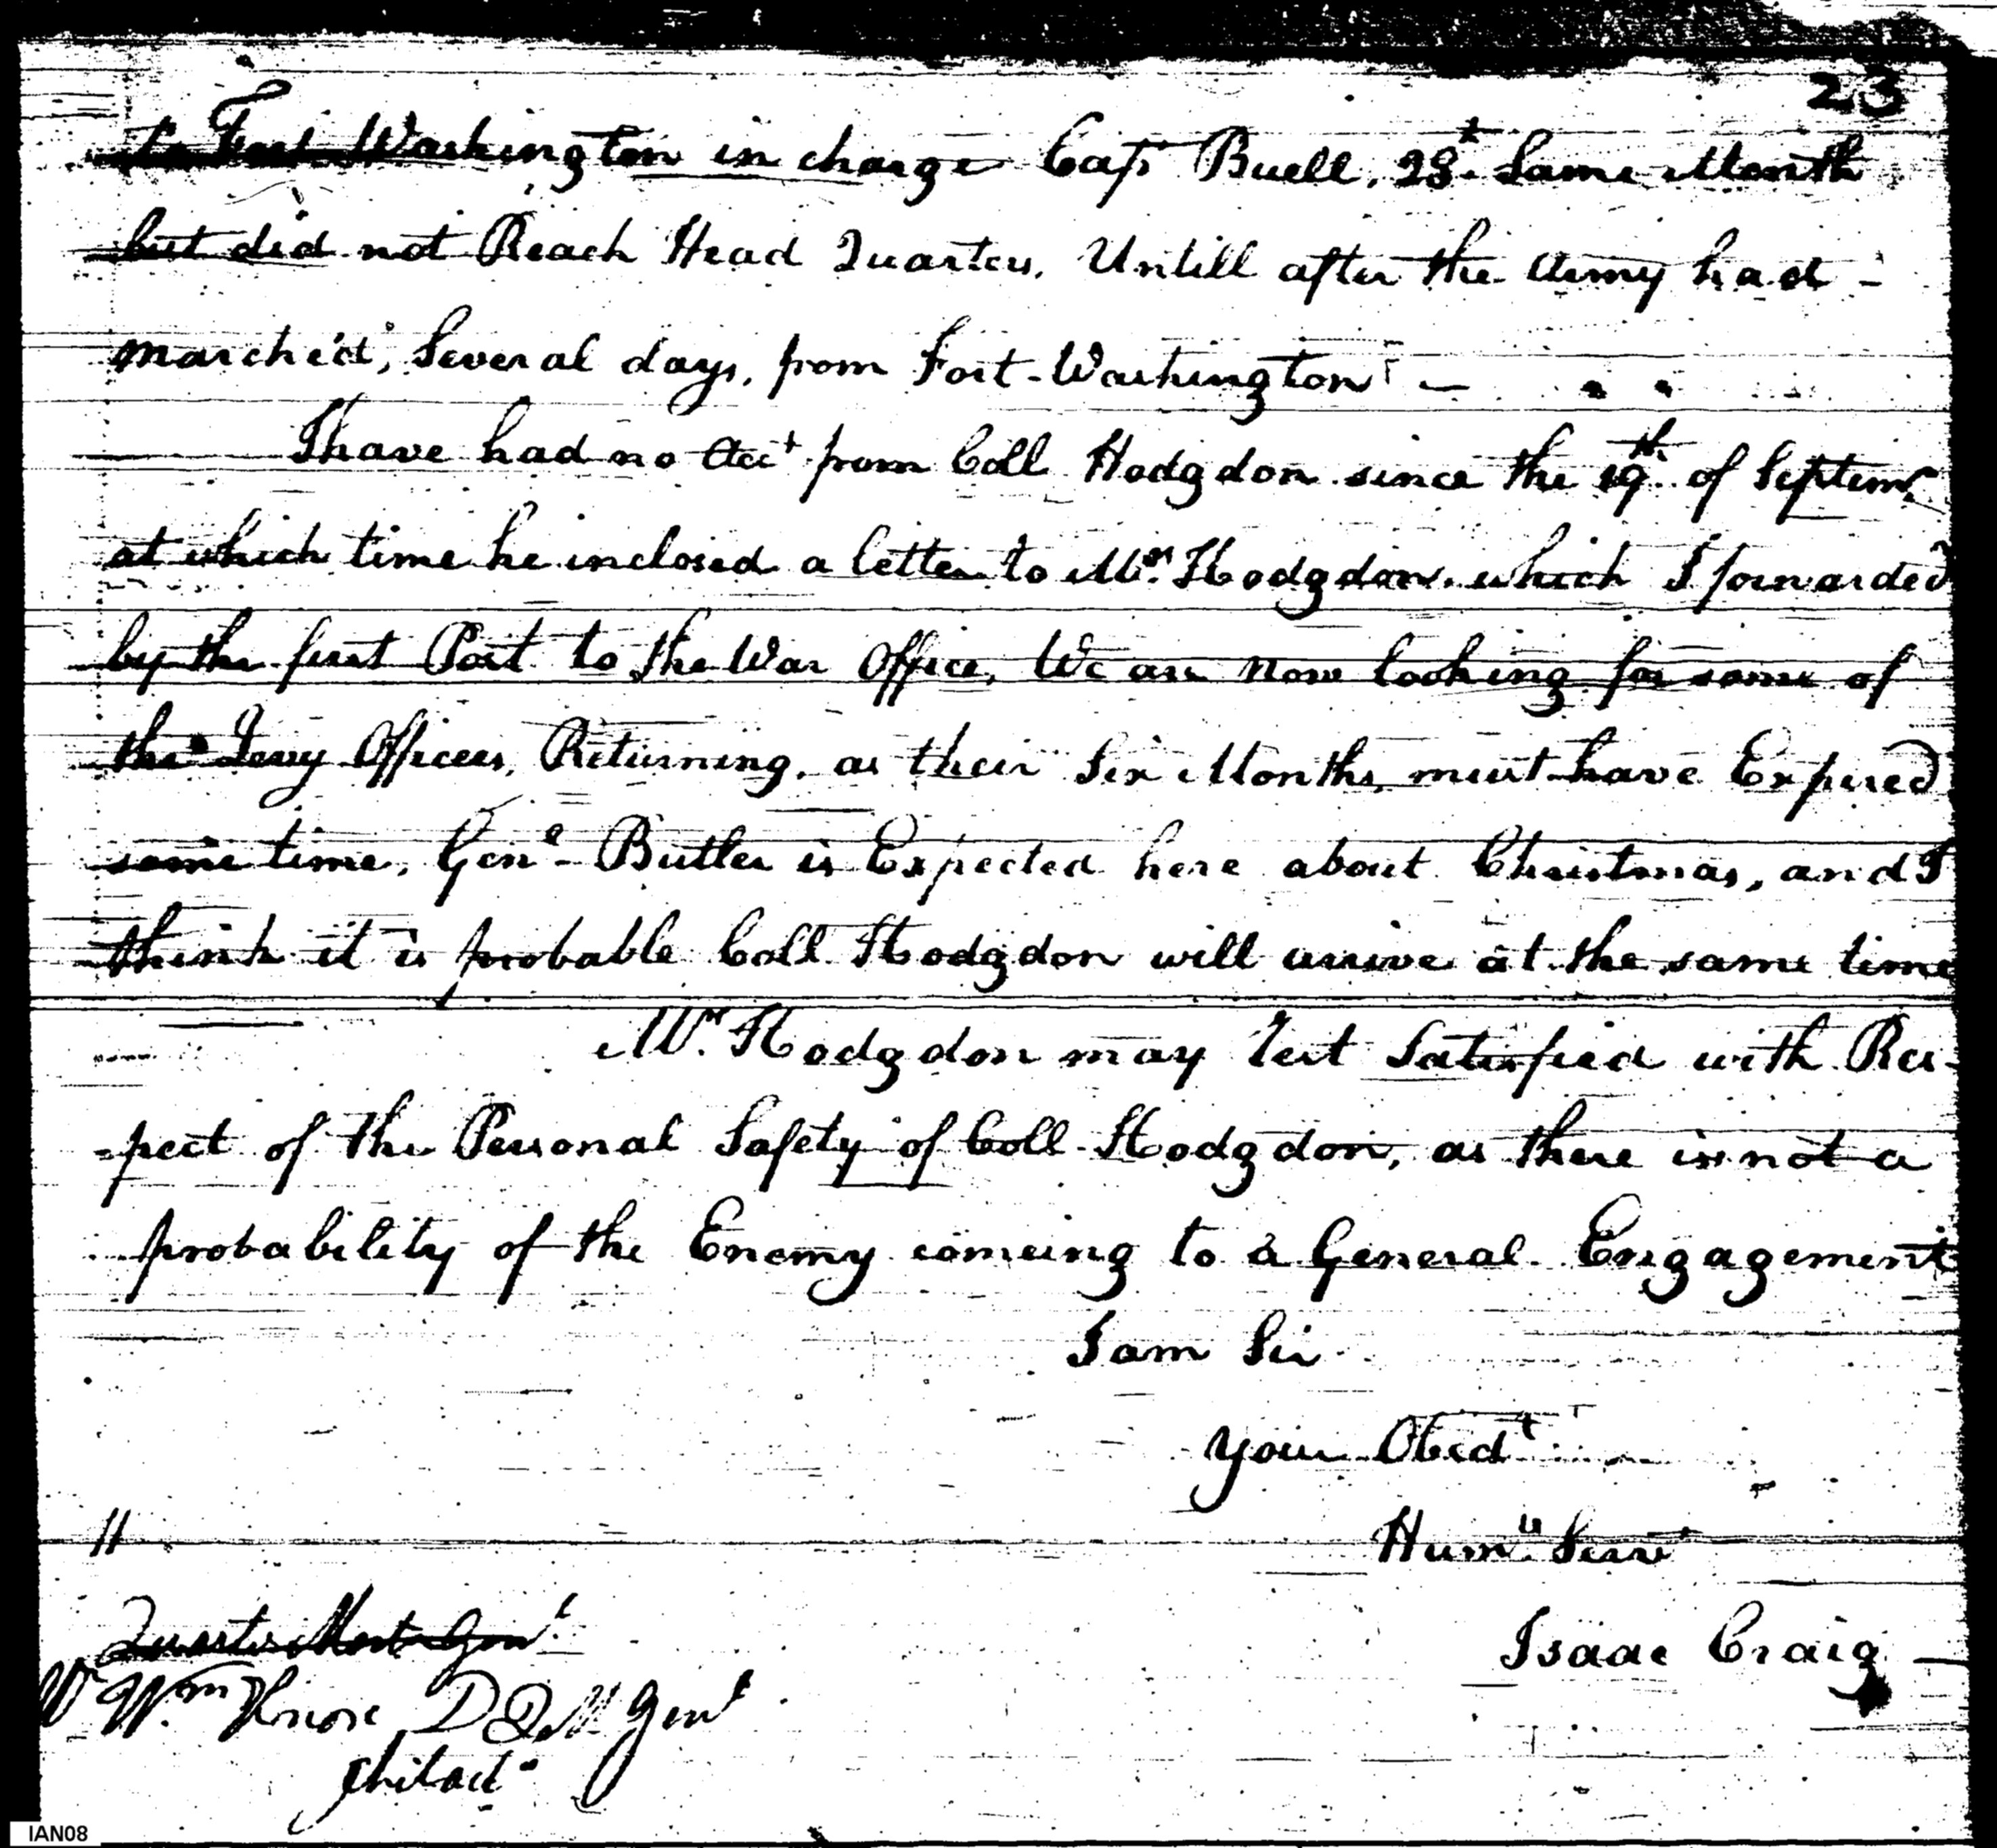 23
to Fort Washington in charge Capt Buell, 28t. Same Month
but did not Reach Head Quarters, Untill after the Army had -
march'd, Several days, from Fort-Washington —
I have had no Acct from Coll Hodgdon since the 19th of Septemr
at which time he inclosed a letter to Mrs. Hodgdon, which I forwarded
by the first Post to the War Office, We are now looking for some of
the Levy Officers, Returning, as their Six Months, must have Expired
some time, Genl Butler is Expected here about Christmas, and I
think it is probable Coll Hodgdon will arrive at the same time
Mrs. Hodgdon may Rest Satisfied with Res-
-pect of the Personal Safety of Coll Hodgdon, as there is not a
probability of the Enemy comeing to a General Engagement
I am Sir
your Obedt
Humle Servt
Isaac Craig
Quarter Mastr Genl
Wm Knox D Q M Genl
Philada
IAN08